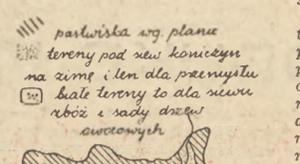 pastwiska wg. planu
tereny pod siew koniczyn
na zimę i len dla przemysłu
białe tereny to dla siewu
zbóż i sady drzew
owocowych